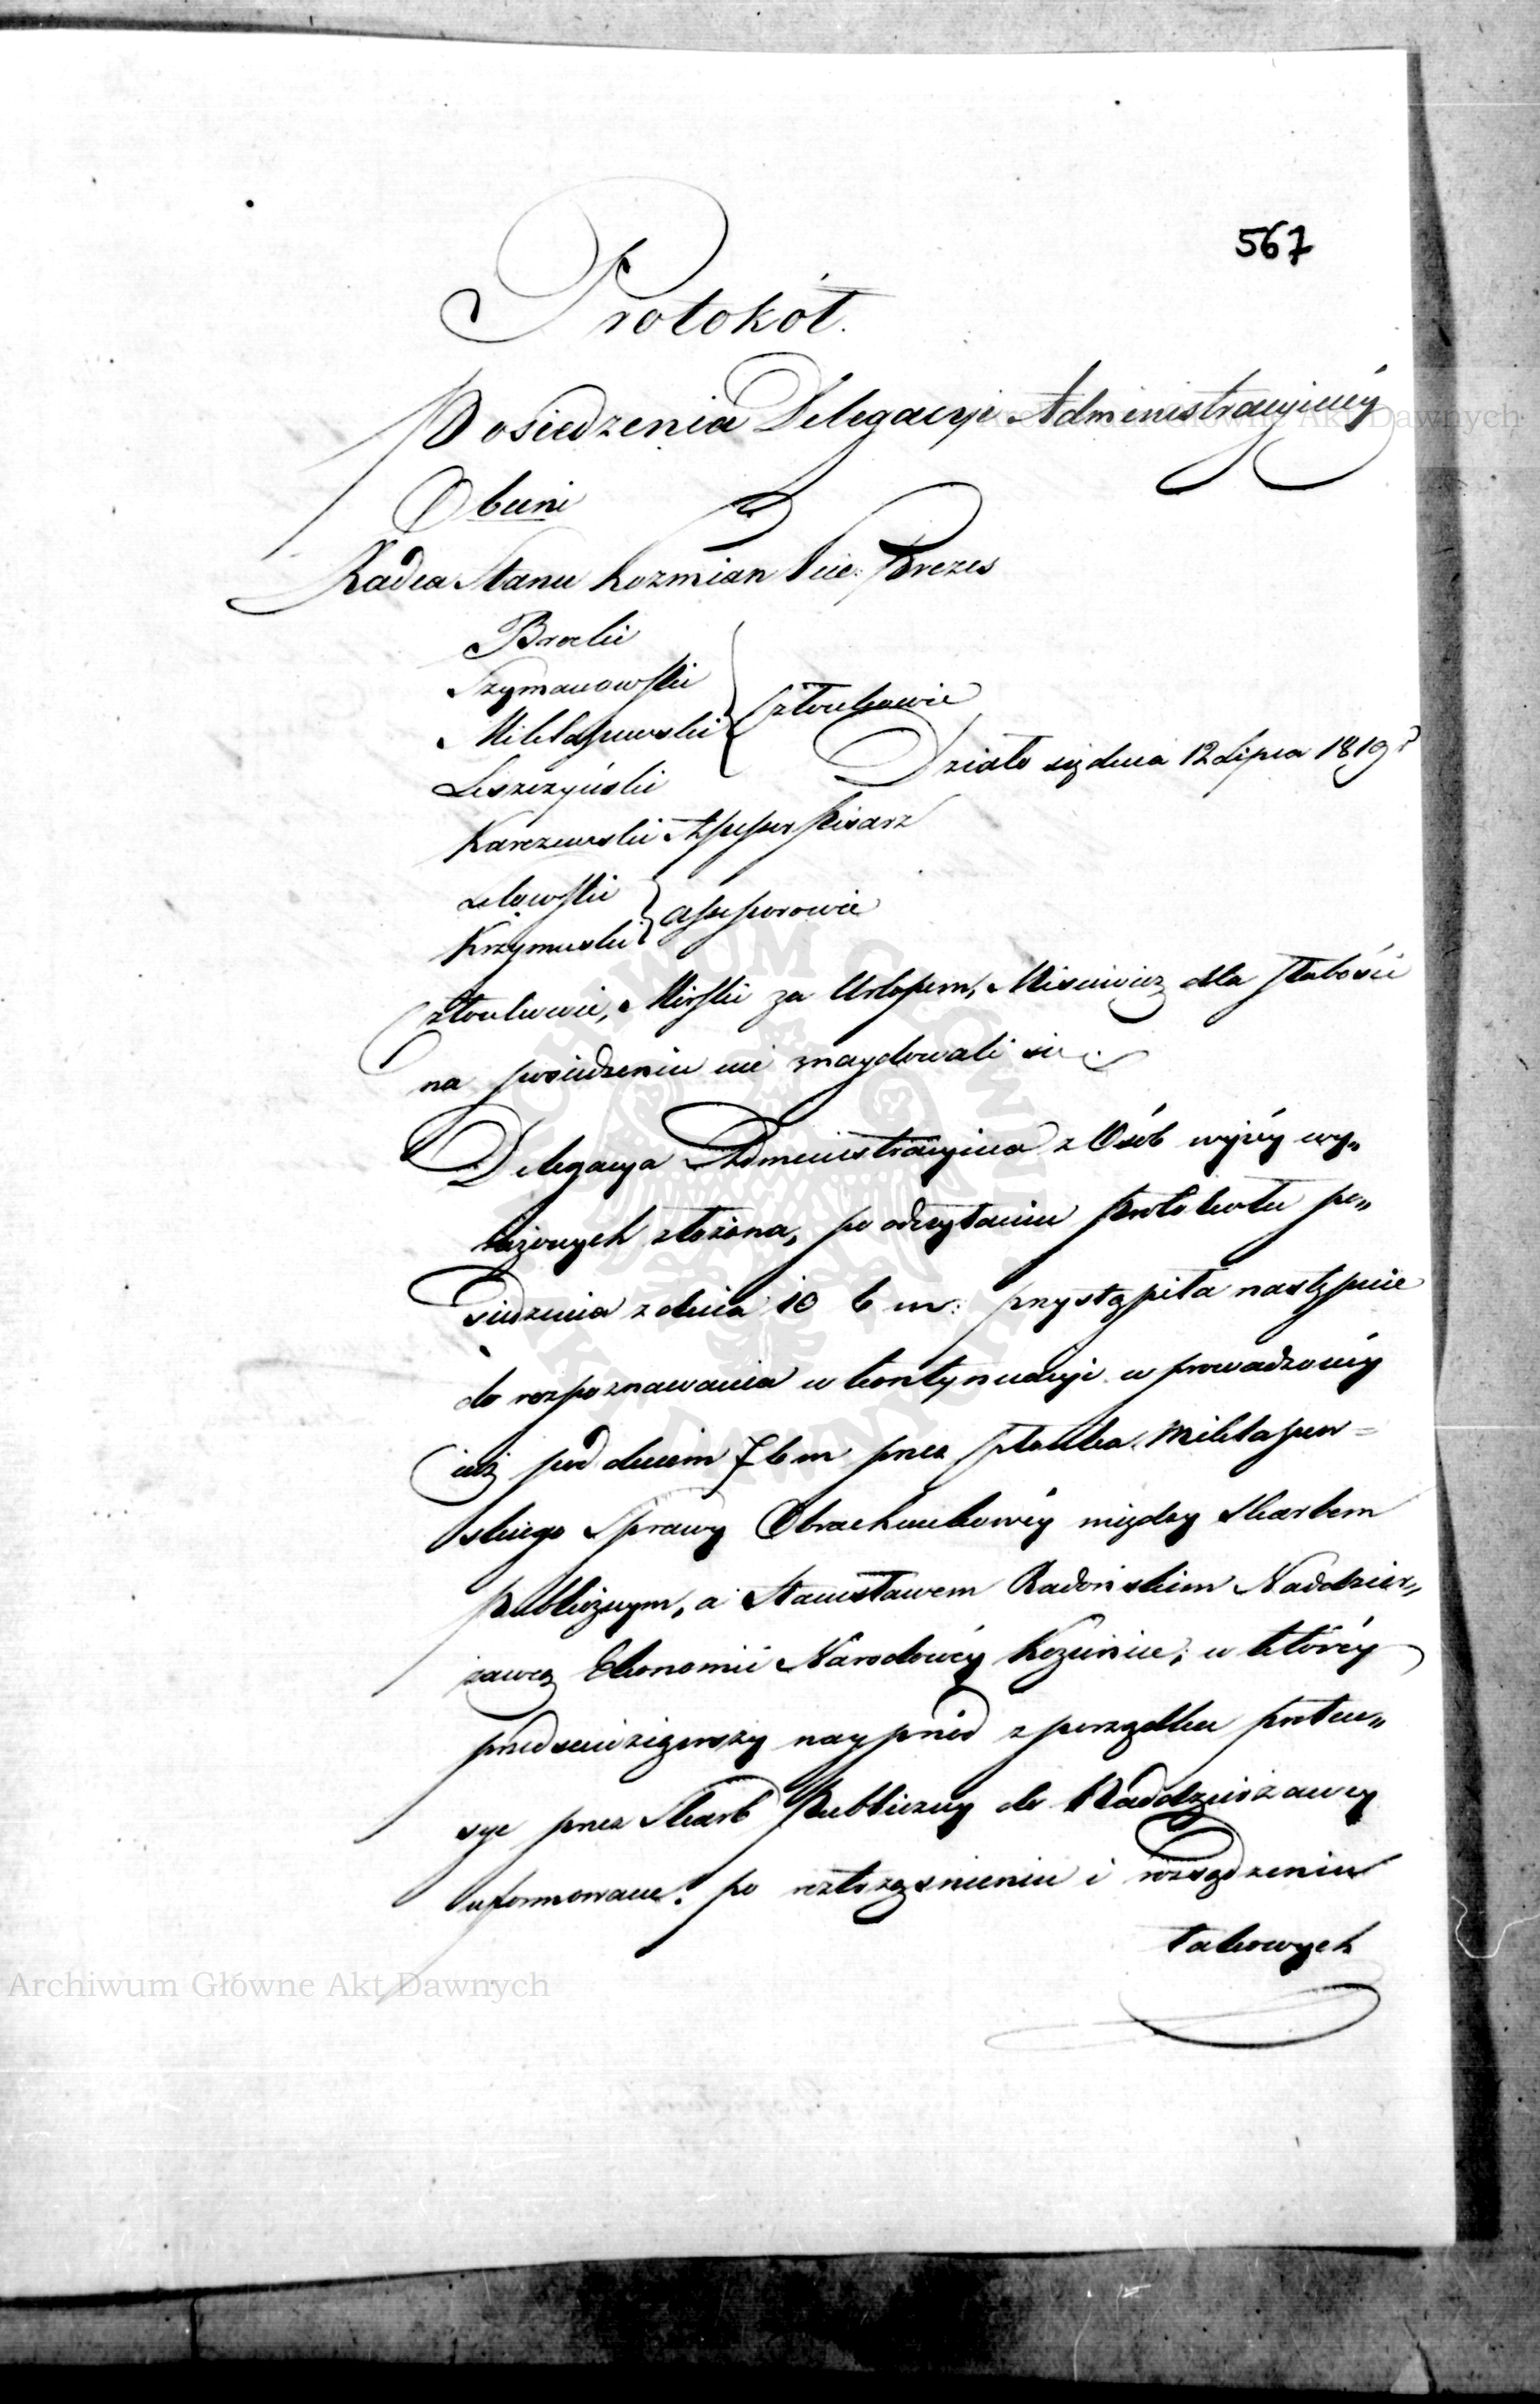 567
Protokół.
Posiedzenia Delegacyi Administracyiney
Obecni
Radca Stanu Kozmian Vice: Prezes
Szymanowski
Mikłaszewski
Członkowie
Działo się dnia 12 Lipca 1819 r
Leszczyński
Karczewski Assessor Pisarz
Assessorowie
Krzymuski
Członkowie, Mirski za Urlopem, dla słabości
na posiedzeniu nie znaydowali się.
Delegacya Administracyina z Osób wyżey wy„
rażonych złożona, po odczytaniu Protokołu po„
siedzenia z dnia 10 b m: przystąpiła następnie
do rozpoznawania w kontynuacyi wprowadzoney
iuż pod dniem 7 b m przez Członka Mikłaszew=
skiego Sprawy Obrachunkowéy między Skarbem
Publicznym, a Stanisławem Radońskim Naddzier„
żawcą Ekonomii Narodowéy Kozienice; w któréy
przedsięwziąwszy nayprzód z porządku preten„
sye przez Skarb Publiczny do Naddzierżawcy
uformowane, po roztrząśnieniu i rozsądzeniu
takowych
Archiwum Główne Akt Dawnych